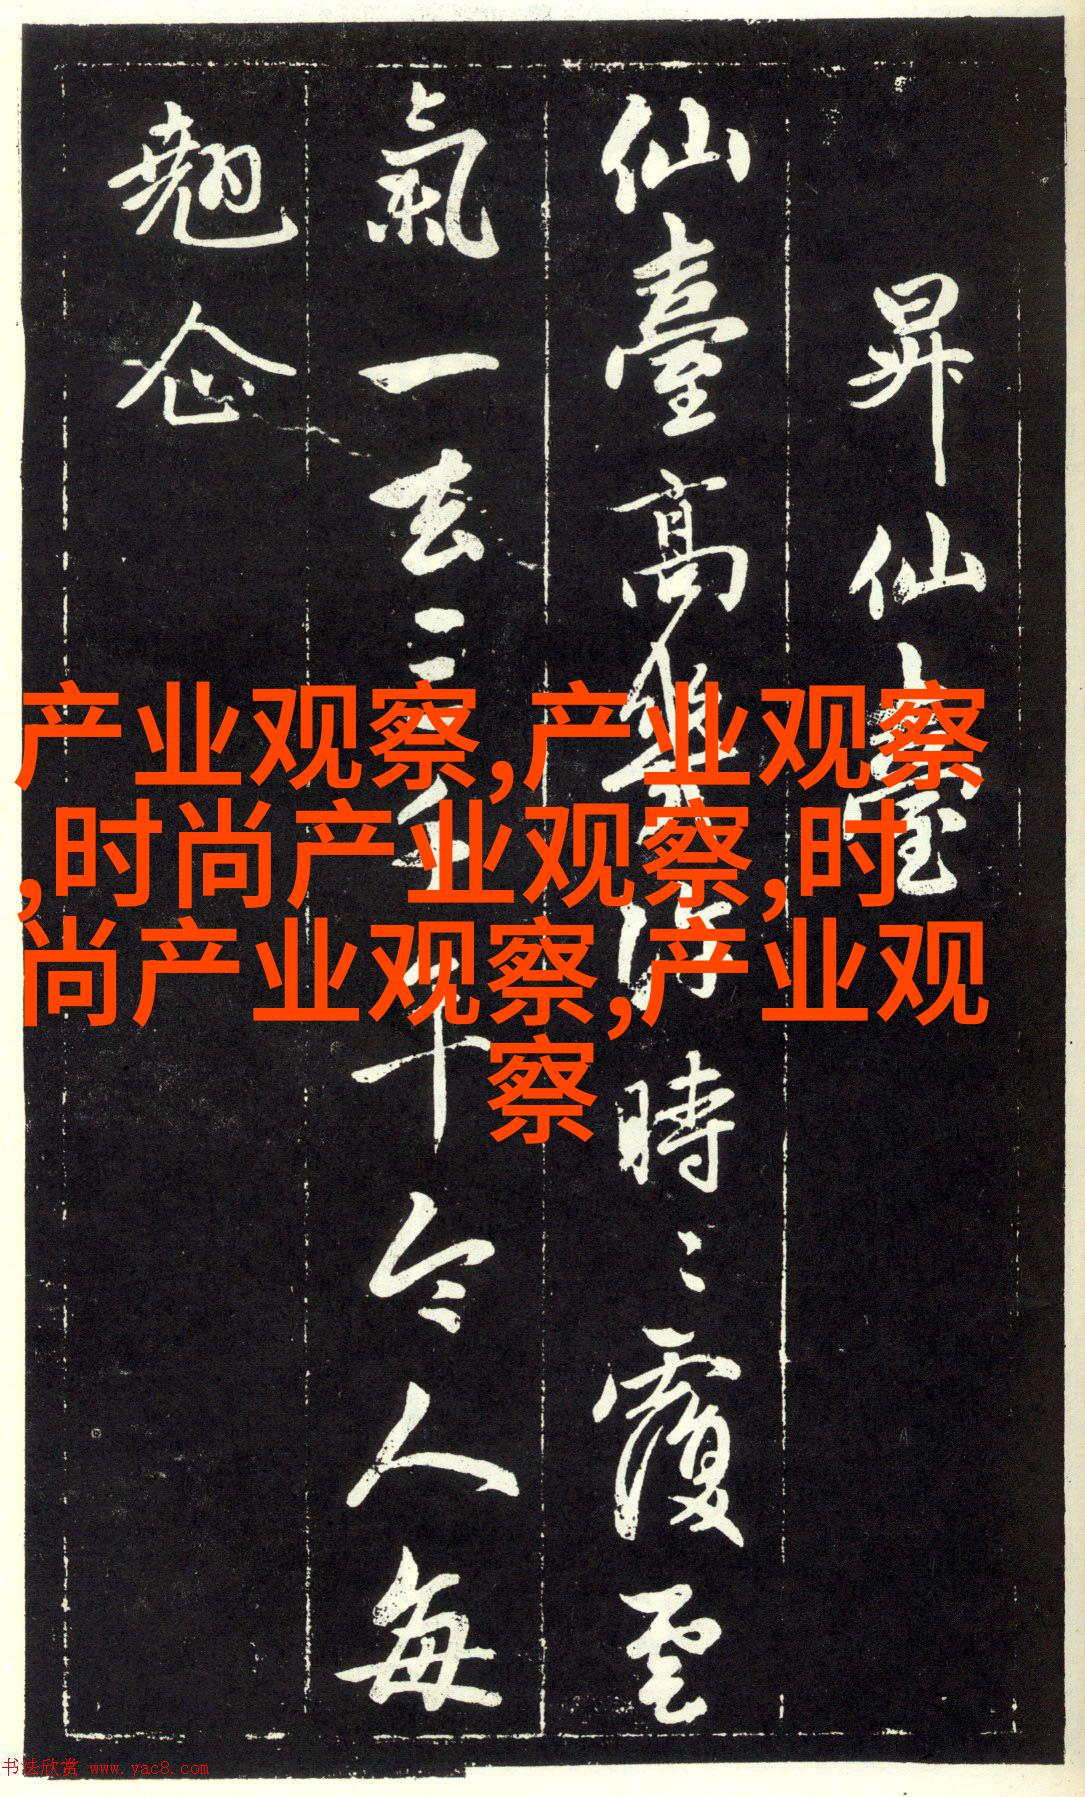 昇仙臺
仙臺高幾許時〻覆雲
氣一去三千年令人每
翹企
产业观察,产业观察
,时尚产业观察,时
尚产业观察,产业观
察
书法欣赏 www.yac8.com